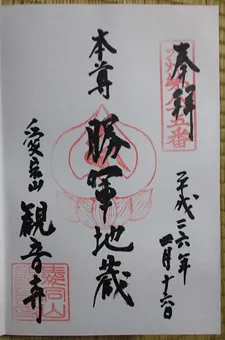 奉拝
本尊
勝軍地蔵
愛宕山
観音寺
平成二六年
一月十六日